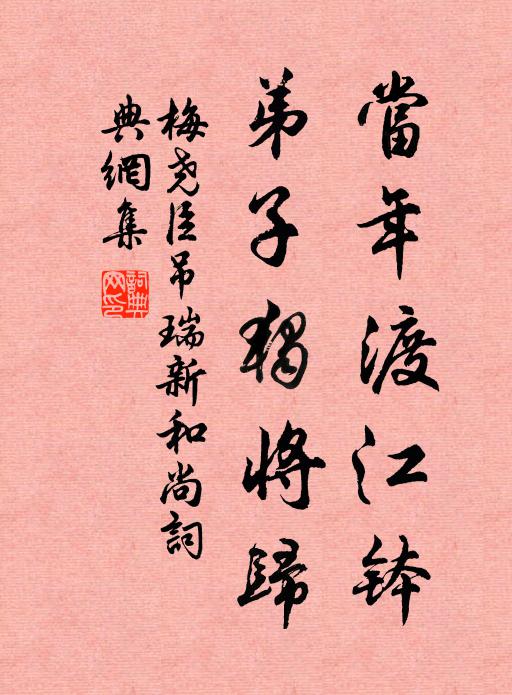 當年渡江鉢
弟子獨將歸
梅尭臣吊瑞新和尚詞
典網集
詞典網印